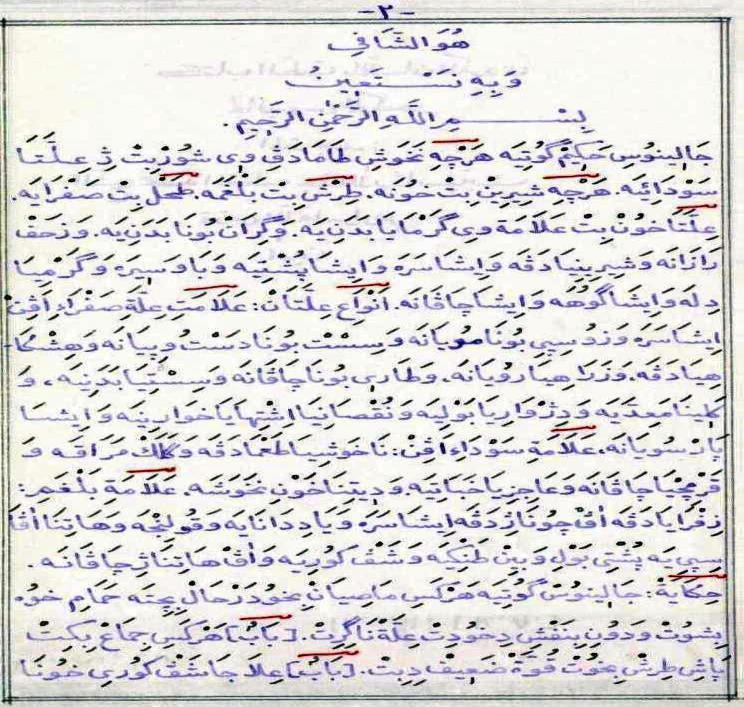 -٢-
هُوَ الشَّافِي
وَبِهِ نَسْتَعِينُ
بِسْمِ اللَّهِ الرَّحْمٰنِ الرَّحِيمِ.
جَالِينُوسِ حَكِيمْ گُوتِيَه هَرْچِه نَخوَشِ طَامَا دَڤِ وِي شُورْبِتْ ژِ عِلَّتَا
سَوْدَائِيَه. هَرْچِه شِيرِينْ بِتْ خُونَه. طِرْشْ بِتْ بَلْغَمَه. طَحْل بِتْ صَفْرَايَه.
عِلَّتَا خُونْ بِتْ عَلَامَة وِي گَرْمَايَا بَدَنِ يَه. وَگِرَانْ بُونَا بَدَنِ يَه. وَزَحْف
رَازَانَه وَشِيرِينِيَا دَڤَه وَاِيشَا سَرَه وَاِيشَا پُشْتِيَه وَبَاوَسِيرَه وَگَرْمِيَا
دِلَه وَاِيشَا گُوهَه وَاِيشَا چَاڤَانَه. اَنْوَاعِ عِلَّتَانْ: عَلَامَتِ عِلَّة صَفْرَاءِ اَڤِنْ
اِيشَا سَرَه وَزُو سِپِي بُونَا مُويَانَه وَسِسْتْ بُونَا دَسْتْ وپِيَانَه وَهِشْكَا-
هِيَا دَڤَه. وَزَرَاهِيَا رُويَانَه. وَطَارِي بُونَا چَاڤَانَه وَسِسْتِيَا بَدَنِيَه، وَ
كِلِينَا مَعِدَيَه وَدِژْوَارِيَا بَوْلِيَه وَنُقْصَانِيَا اِشْتِهَايَا خَوَارِنِيَه وَاِيشَا
پَارْسُويَانَه. عَلَامَة سَوْدَاءِ اَڤِنْ: نَاخَوْشِيَا طَعْمَا دَڤَه وَكَلَكْ مَرَاقَه وَ
قَرْمِچِيَا چَاڤَانَه وَعَاجِزِيَا خَبَاتِيَه. وَدِيتِنَا خَوْنِ نَخَوَشَه. عَلَامَة بَلْغَمِ:
زِڤْرَايَا دَڤَه اَڤْ چُونَا ژِ دَڤَه اِيشَا سَرَه وَيَا دِدَانَايَه وَقُولِنْجَه وَهَاتِنَا اَڤَا
سِپِي يَه پُشْتِي بَوْل وَبِينْ طَنْگِيَه وَشَڤْ كُورِيَه وَاَڤْ هَاتِنَا ژِ چَاڤَانَه.
حِكَايَة: جَالِينُوسْ گُوتِيَه هَرْكَسِ مَاصِيَانْ بِخُودَرْحَالْ بِچِتَه حَمَامِ خوُه
بِشُوتْ وَدُونِ بِنَفْشِ دِخُودِتْ عِلَّة نَاگِرِتْ. [بَابْ] هَرْكَسِ جِمَاعْ بِكِتْ
پَاشِ طِرْشِ بِخُوتْ قُوَّة ضَعِيفْ دِبِتْ. [بَابْ] عِلَاجَا شَڤْ كُورِي خُونَا